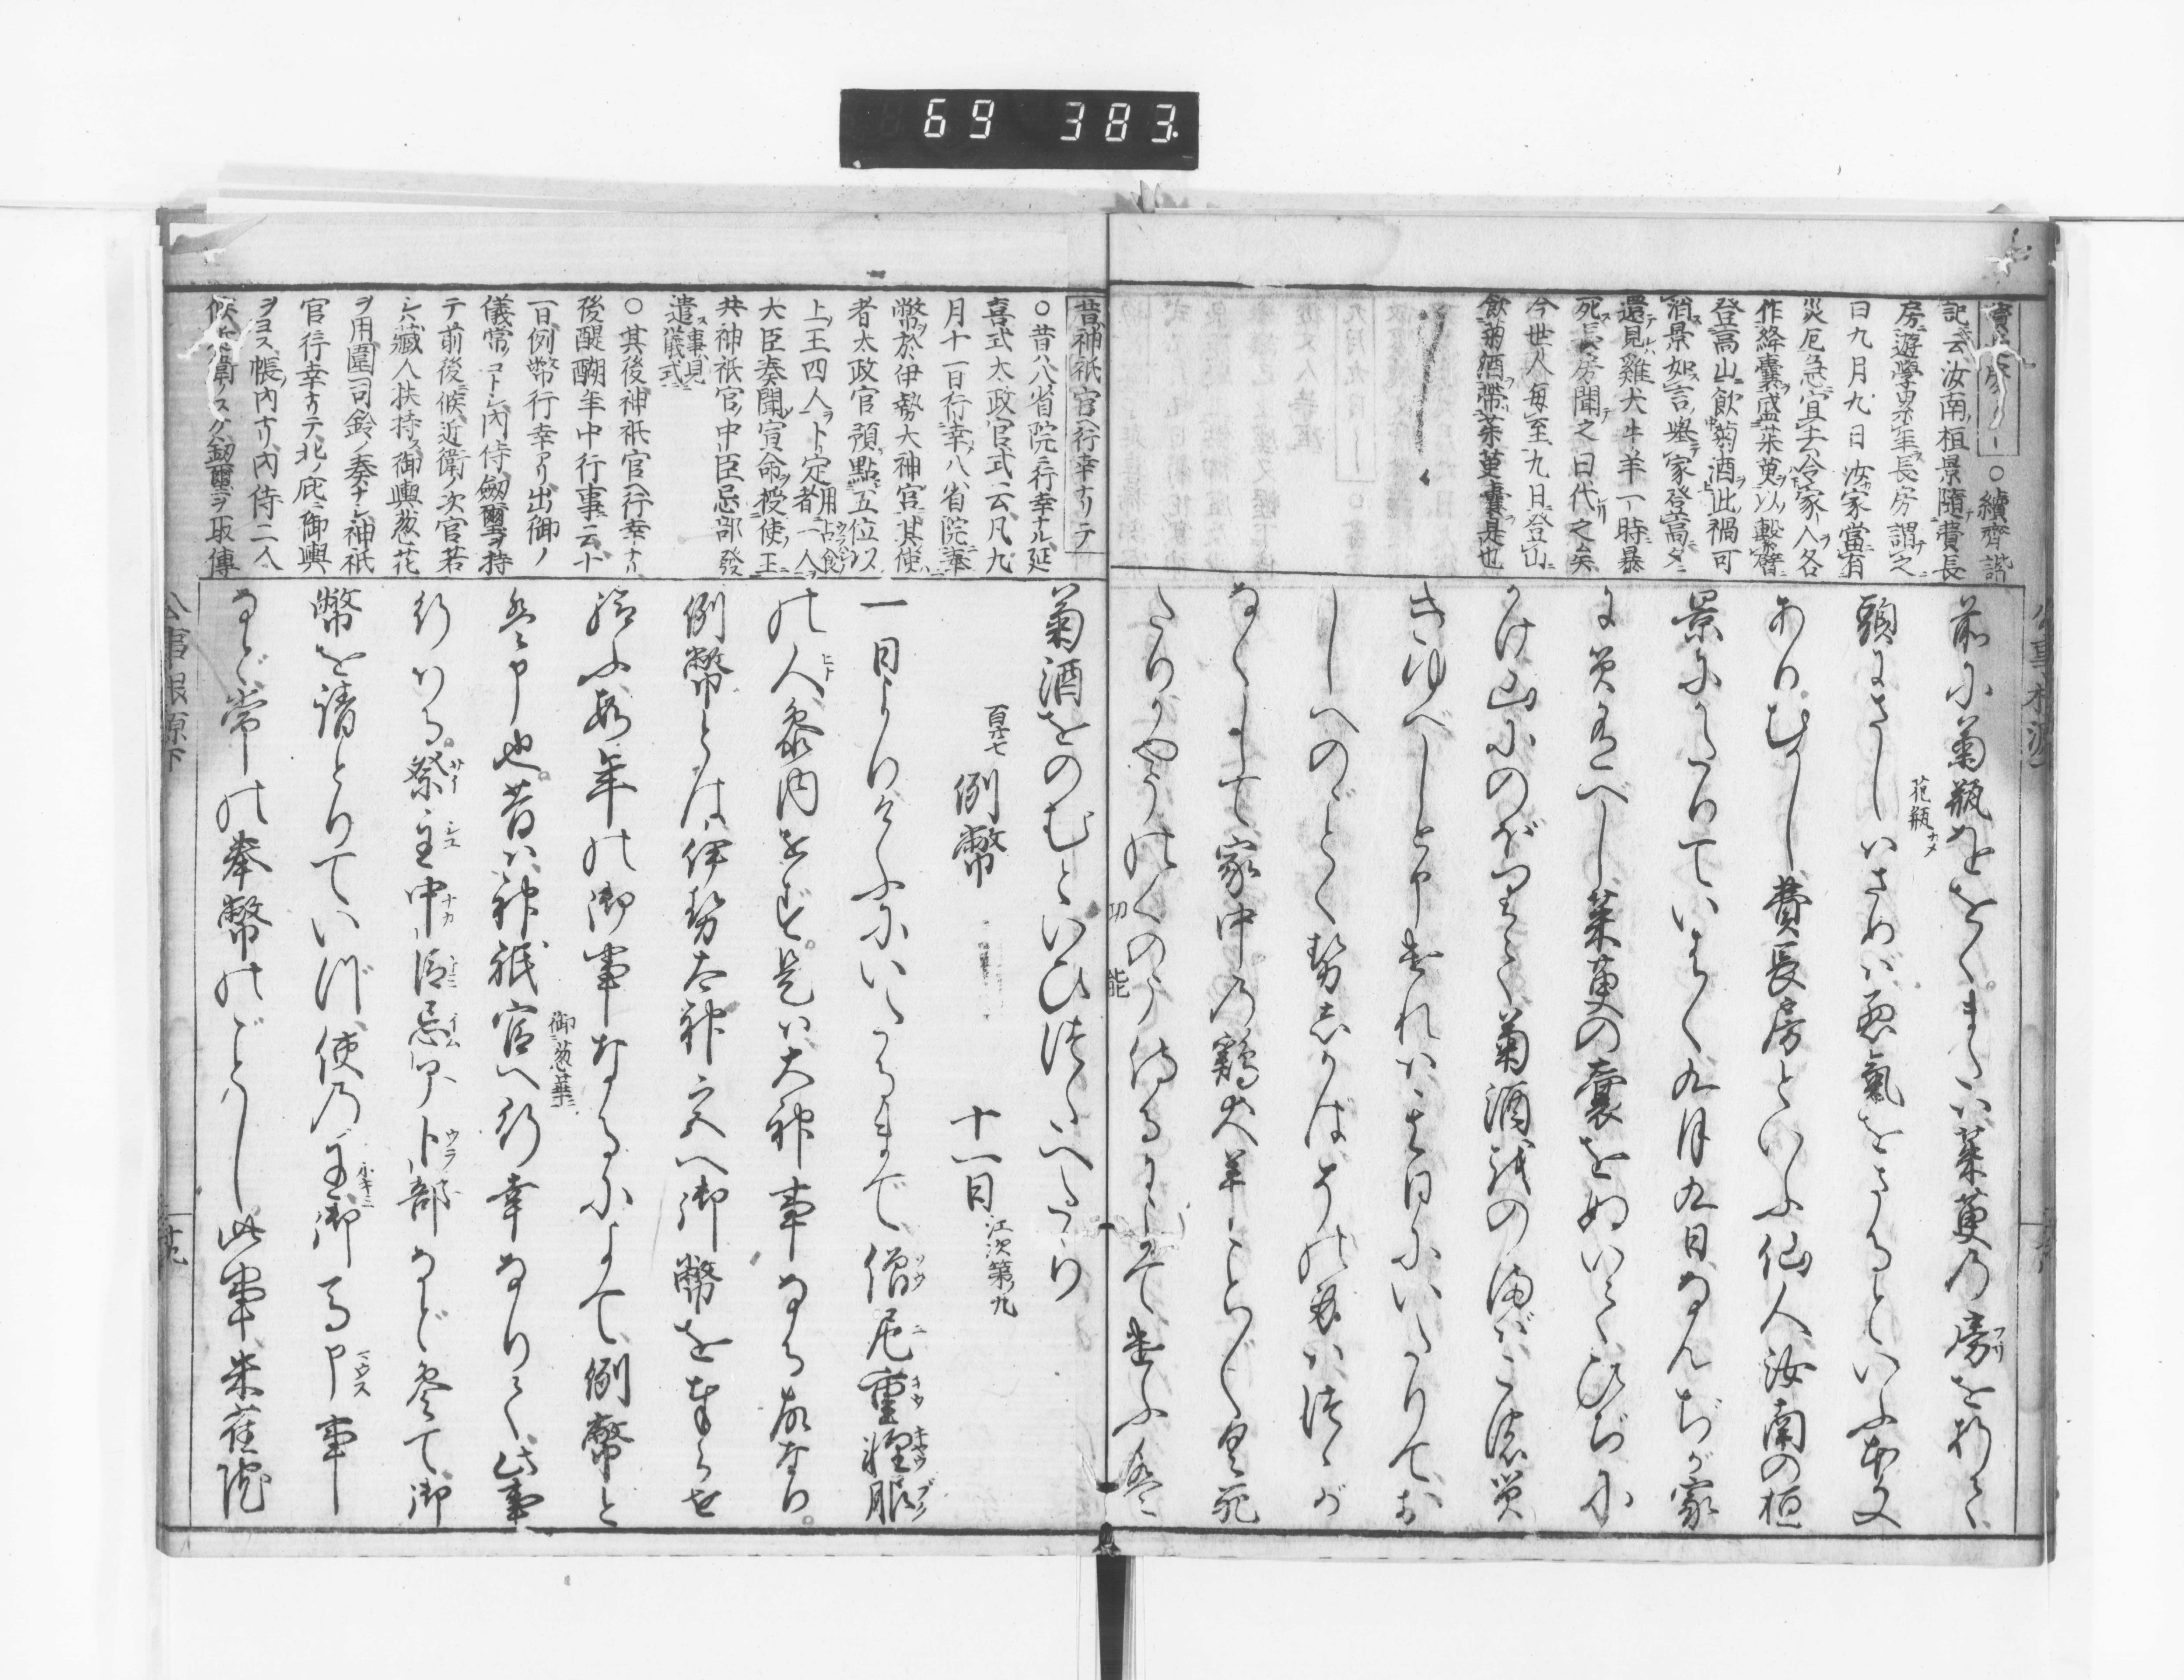 69 383
費長房
○續齊諧
記云汝南桓景隨費長
房遊學累年長房謂之
曰九月九日汝家當有
災厄急宜去令家人各
作絳囊盛茱萸以繋臂
登高山飲菊酒此禍可
消景如言擧家登高夕
還見雞犬牛羊一時暴
死長房聞之曰代之矣
今世人毎至九日登山
飲菊酒帶茱萸囊是也
前に菊瓶ををく。または茱萸の房を折て、
花瓶
頭にさしはさめば悪氣をさるといふ本文
あり。むかし費長房といふ仙人汝南の桓
景にかたりていはく九月九日なんぢが家
に災有べし茱萸の囊をぬいてひぢに
かけ山にのぼりて菊酒をのまばこの災
きゆべしと申ければ其日にいたりてお
しへのごとくせしかば其身はつゝが
なくして家中の鶏犬羊ことごとく死
たりかやうのくのう侍るによりてけふ
功能
菊酒をのむといひつたへたり
百卅七 例幣 十一日 江次第九
一日よりけふにいたるまで僧尼重軽服
の人参内をせず。是は大神事なる故なり。
例幣とは伊勢太神宮へ御幣を奉らせ
給ふ毎年の御事なるによて例幣と
は申也。昔は神祇官へ行幸なりて此事
御葱華
行はる。祭主中臣忌部卜部など参て御
幣を請とりていづ使の王御馬申事
など常の奉幣のごとくし此事朱雀院
昔神祇官ヘ行幸ナリテ
○昔ハ八省院ニ行幸ナル延
喜式太政官式云凡九
月十一日行幸八省院奉
幣於伊勢大神宮其使
者太政官預點五位以
上王四人卜定用占食者一人
大臣奏聞宣命授使王
共神祇官中臣忌部發
遣事見儀式
○其後神祇官ヘ行幸ナリ
後醍醐年中行事云十
一日例幣行幸アリ出御ノ
儀常ノコトシ內侍劔璽ヲ持
テ前後ニ候近衛ノ次官若
シハ藏人扶持ス御輿葱花
ヲ用圍司鈴ノ奏ナシ神祇
官行幸ナリテ北ノ庇ニ御輿
ヲヨス帳內ナリ內侍二人
劔璽ヲ取傳
公事根源下